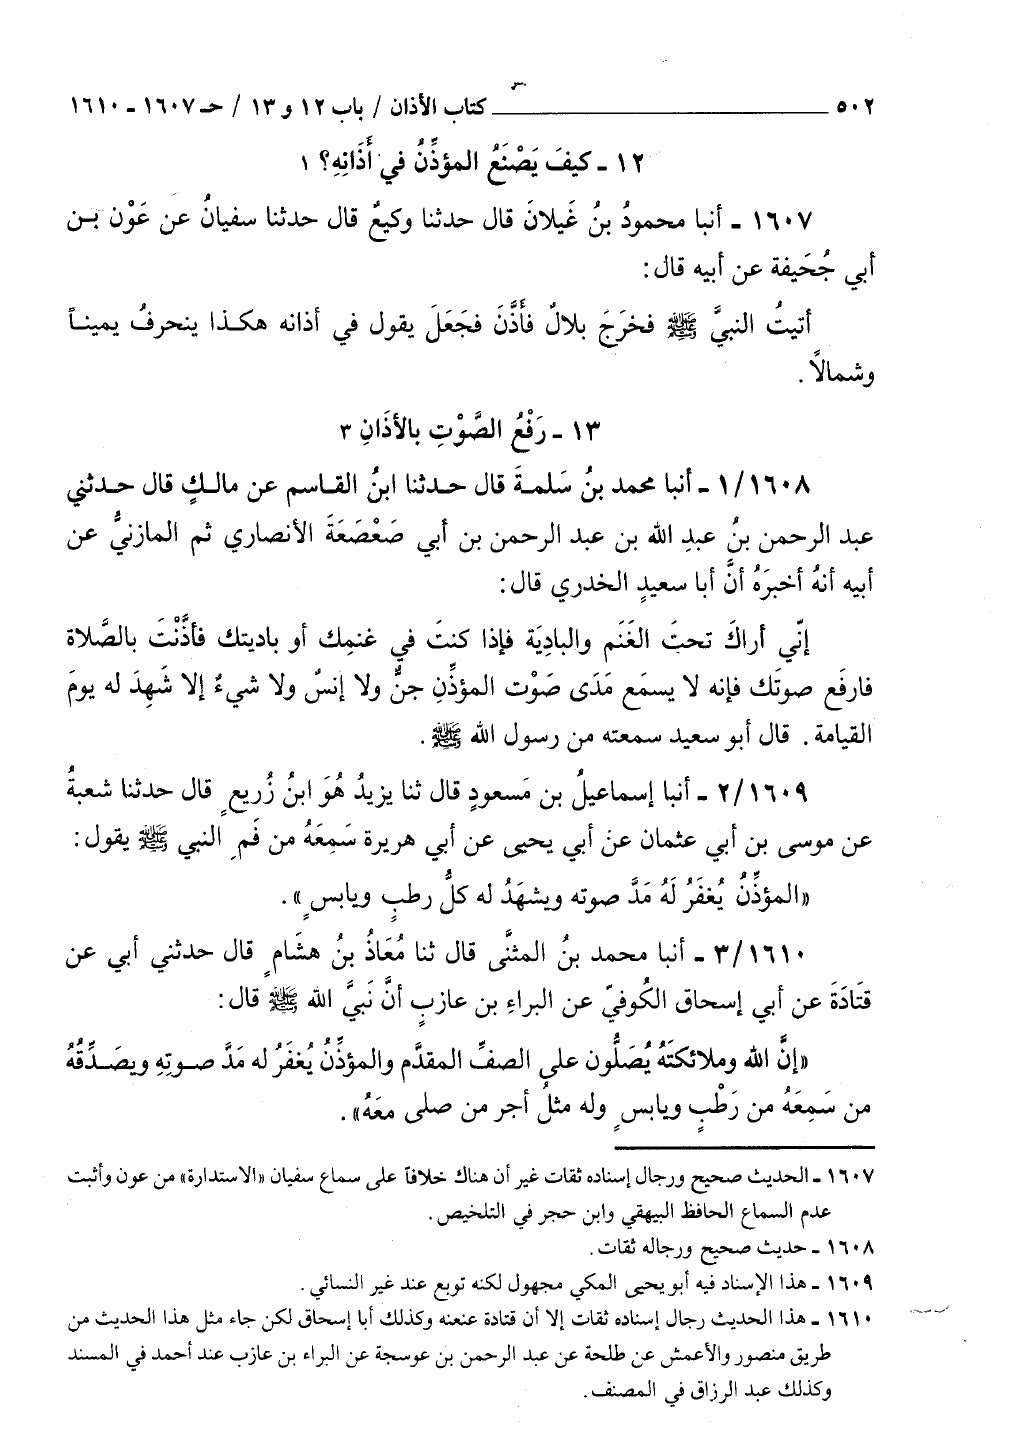 ٥٠٢ ــــــــ كتاب الأذان / باب ١٢ و ١٣ / حـ ١٦٠٧ ـ ١٦١٠
١٢ ـ كيفَ يَصْنَعُ المؤذِّنُ في أَذَانِهِ؟ ١
١٦٠٧ ـ أنبا محمودُ بنُ غَيلانَ قال حدثنا وكيعٌ قال حدثنا سفيانُ عن عَوْن بـن
أبي جُحَيفة عن أبيه قال:
أتيتُ النبيَّ ﷺ فخرَجَ بلالٌ فأَذَّنَ فجَعَلَ يقول في أذانه هكـذا ينحرفُ يمينـاً
وشمالاً.
١٣ ـ رَفْعُ الصَّوْتِ بالأذَانِ ٣
١/١٦٠٨ ـ أنبا محمد بنُ سَلمـةَ قال حـدثنا ابنُ القـاسم عن مالـكٍ قال حـدثني
عبد الرحمن بنُ عبدِ الله بن عبد الرحمن بن أبي صَعْصَعَةَ الأنصاري ثم المازنيُّ عن
أبيه أنهُ أخبرَهُ أنَّ أبا سعيدٍ الخدري قال:
إنّي أراكَ تحبَ الغَنَم والبادِيَة فإذا كنتَ في غنمِك أو باديتك فأذَّنْتَ بالصَّلاة
فارفَع صوتَك فإنه لا يسمَع مَدَى صَوْت المؤذِّنِ جنٌّ ولا إنسٌ ولا شيءٌ إلا شَهِدَ له يومَ
القيامة. قال أبو سعيد سمعته من رسول الله ﷺ.
٢/١٦٠٩ ـ أنبا إسماعيلُ بن مَسعودٍ قال ثنا يزيدُ هُوَ ابنُ زُريعٍ قال حدثنا شعبةُ
عن موسى بن أبي عثمان عن أبي يحيى عن أبي هريرة سَمِعَهُ من فَمِ النبي ﷺ يقول:
«المؤذِّنُ يُغفَرُ لَهُ مَدَّ صوته ويشهَدُ له كلُّ رطبٍ ويابسٍ».
٣/١٦١٠ ـ أنبا محمد بنُ المثنَّى قال ثنا مُعَاذُ بنُ هشَامٍ قال حدثني أبي عن
قتَادَةَ عن أبي إسحاق الكُوفيّ عن البراءِ بن عازبٍ أنَّ نَبيَّ الله ﷺ قال:
«إنَّ الله وملائكتَهُ يُصَلُّون على الصفِّ المقدَّم والمؤذِّنُ يُغفَرُ له مَدَّ صـوتِهِ ويصَـدِّقُهُ
من سَمِعَهُ من رَطْبٍ ويابسٍ وله مثلُ أجر من صلى معَهُ».
١٦٠٧ ـ الحديث صحيح ورجال إسناده ثقات غير أن هناك خلافاً على سماع سفيان «الاستدارة» من عون وأثبت
عدم السماع الحافظ البيهقي وابن حجر في التلخيص.
١٦٠٨ ـ حديث صحيح ورجاله ثقات.
١٦٠٩ ـ هذا الإسناد فيه أبو يحيى المكي مجهول لكنه توبع عند غير النسائي.
١٦١٠ ـ هذا الحديث رجال إسناده ثقات إلا أن قتادة عنعنه وكذلك أبا إسحاق لكن جاء مثل هذا الحديث من
طريق منصور والأعمش عن طلحة عن عبد الرحمن بن عوسجة عن البراء بن عازب عند أحمد في المسند
وكذلك عبد الرزاق في المصنف.